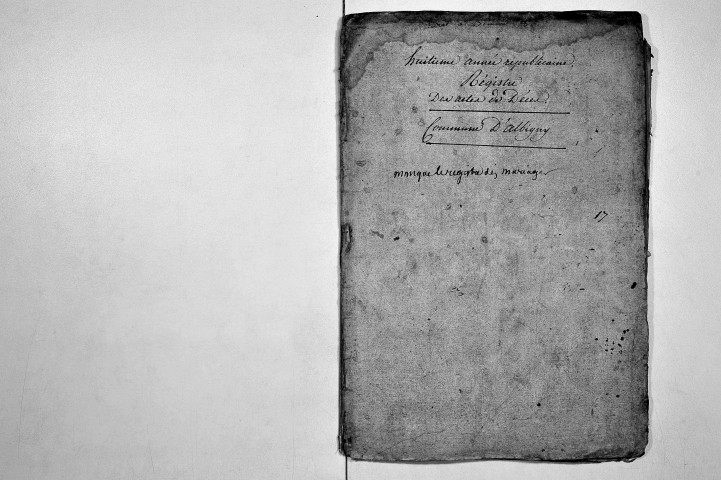 huitieme année republicaine.
Régistre
Des actes de Décés.
Commune D'Albigny
manque le registre des mariages
17